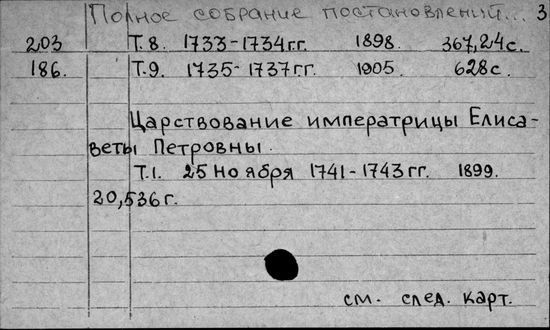 Полное собрание постановлений... 3
203 Т.8. 1733-1734гг. 1898. 367,24с.
186. Т.9. 1735-1737гг. 1905. 628с.
Царствование императрицы Елиса-
веты Петровны.
Т.1. 25 ноября 1741-1743гг. 1899.
20,536г.
см. след. карт.